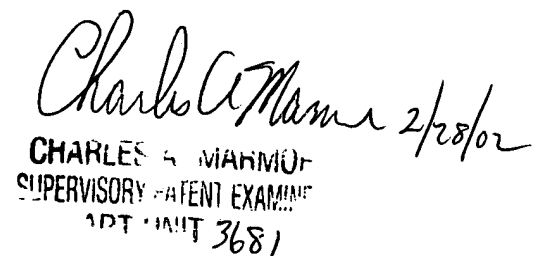 Charles A Marmor 2/28/02
CHARLES A MARMOR
SUPERVISORY PATENT EXAMINER
ART UNIT 3681